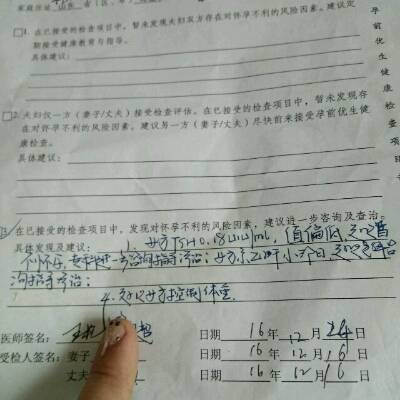 家庭住址 山东 省
□1. 在已接受的检查项目中，暂未发现夫妇双方存在对怀孕不利的风险因素。建议定
期接受健康教育与指导。
具体建议：
□2. 夫妇仅一方（妻子/丈夫）接受检查评估。在已接受的检查项目中，暂未发现存
在对怀孕不利的风险因素。建议另一方（妻子/丈夫）尽快前来接受孕前优生健
康检查。
具体建议：
3. 在已接受的检查项目中，发现对怀孕不利的风险因素，建议进一步咨询及查治。
具体发现及建议： 1. 女方TSH0.18uIU/mL, 值偏低 建议暂
不怀孕, 专科进一步咨询指导治疗; 女方 建议
询指导治疗;
建议女方控制体重.
医师签名：
日期 16 年 12 月 24 日
受检人签名：妻子
日期 16 年 12 月 16 日
丈夫
日期 16 年 12 月 16 日
孕前优生健康检查